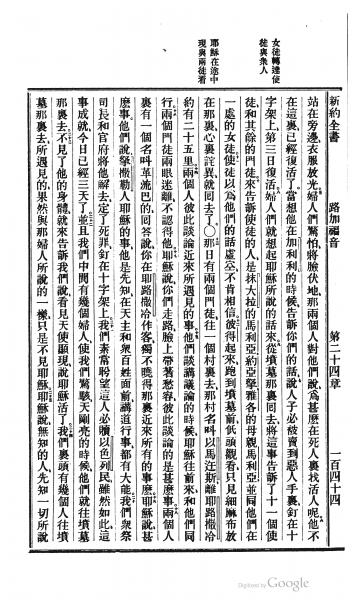 新約全書 路加福音 第二十四章 一百四十四
站在旁邊衣服放光婦人們驚怕將臉伏地那兩個人對他們說爲甚麽在死人裏找活人呢他不
在這裏已經復活了當想他在加利利的時候告訴你們的話說人子必被賣到惡人手裏釘在十
字架上第三日復活婦人們就想起耶穌所說的話來從墳墓那裏回去將這事告訴了十一個使
徒和其餘的門徒來告訴使徒的人是抹大拉的馬利亞約亞拏雅各的母親馬利亞並同他們在
一處的女徒使徒以爲他們的話虛空不肯相信彼得起來跑到墳墓前低頭觀看只見細麻布放
在那裏心裏詫異就回去了○那日有兩個門徒往一個村裏去那村名叫以馬迕斯離耶路撒冷
約有二十五里兩個人彼此談論近來所遇見的事他們談講議論的時候耶穌往前來和他們同
行兩個門徒兩眼迷離不認得他耶穌說你們走路臉上帶著愁容彼此談論的是甚麽事兩個人
裏有一個名叫革流巴的回答說你在耶路撒冷作客獨不曉得那裏近來所有的事麽耶穌說甚
麽事他們說拏撒勒人耶穌的事他是先知在天主和衆百姓面前講道行事都有大能我們衆祭
司長和官府將他解去定了死罪釘在十字架上我們素常盼望這人必贖以色列民雖然如此這
事成就今日已經三天了並且我們中間有幾個婦人使我們驚駭天剛亮的時候他們就往墳墓
那裏去不見了他的身體就來告訴我們說看見天使顯現說耶穌活了我們裏頭有幾個人往墳
墓那裏去所遇見的果然與那婦人所說的一樣只是不見耶穌耶穌說無知的人先知一切所說
女徒轉達使
徒與衆人
耶穌在途中
現與兩徒看
Digitized by Google